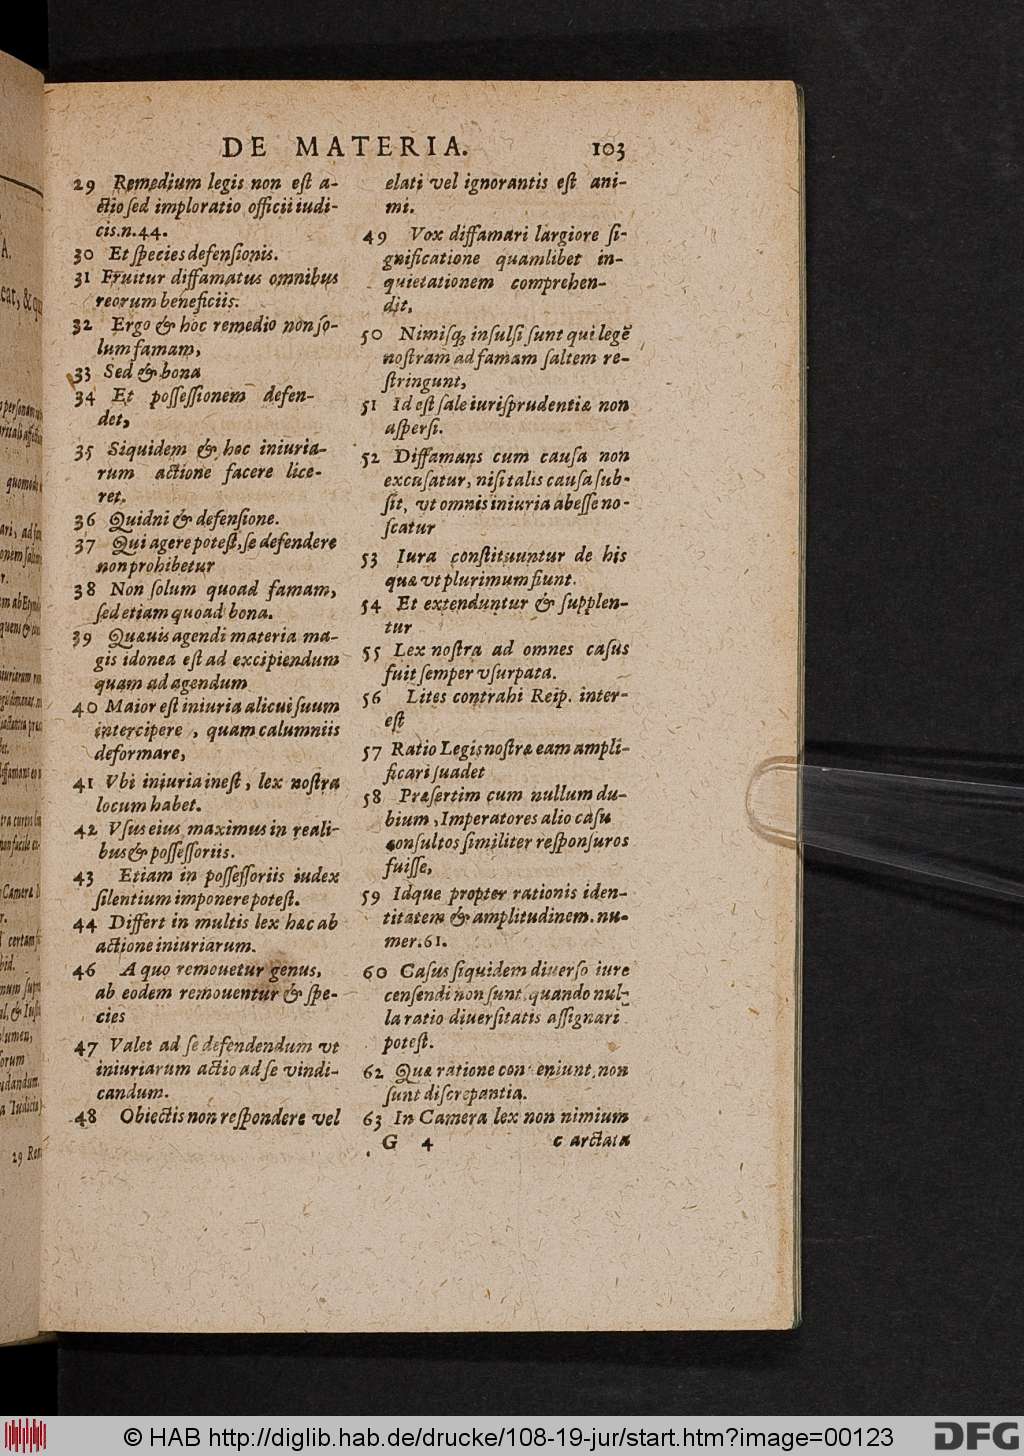 DE MATERIA. 103
29 Remedium legis non eſt a-
ctio ſed imploratio officii iudi-
cis.n.44.
30 Et ſpecies defenſionis.
31 Fruitur diffamatus omnibus
reorum beneficiis.
32 Ergo & hoc remedio non ſo-
lum famam,
33 Sed & bona
34 Et poſſeſſionem defen-
det,
35 Siquidem & hoc iniuria-
rum actione facere lice-
ret.
36 Quidni & defenſione.
37 Qui agere poteſt, ſe defendere
non prohibetur
38 Non ſolum quoad famam,
ſed etiam quoad bona.
39 Quæuis agendi materia ma-
gis idonea eſt ad excipiendum
quam ad agendum
40 Maior eſt iniuria alicui ſuum
intercipere , quam calumniis
deformare,
41 Vbi iniuria ineſt , lex noſtra
locum habet.
42 Vſus eius maximus in reali-
bus & poſſeſſoriis.
43 Etiam in poſſeſſoriis iudex
ſilentium imponere poteſt.
44 Differt in multis lex hæc ab
actione iniuriarum.
46 A quo remouetur genus,
ab eodem remouentur & ſpe-
cies
47 Valet ad ſe defendendum vt
iniuriarum actio ad ſe vindi-
candum.
48 Obiectis non reſpondere vel
elati vel ignorantis eſt ani-
mi.
49 Vox diffamari largiore ſi-
gnificatione quamlibet in-
quietationem comprehen-
dit,
50 Nimiſq; inſulſi ſunt qui legẽ
noſtram ad famam ſaltem re-
ſtringunt,
51 Id eſt ſale iuriſprudentiæ non
aſperſi.
52 Diffamans cum cauſa non
excuſatur, niſi talis cauſa ſub-
ſit, vt omnis iniuria abeſſe no-
ſcatur
53 Iura conſtituuntur de his
quæ vt plurimum fiunt.
54 Et extenduntur & ſupplen-
tur
55 Lex noſtra ad omnes caſus
fuit ſemper vſurpata.
56 Lites contrahi Reip. inter-
eſt
57 Ratio Legis noſtræ eam ampli-
ficari ſuadet
58 Præſertim cum nullum du-
bium, Imperatores alio caſu
conſultos ſimiliter reſponſuros
fuiſſe,
59 Idque propter rationis iden-
titatem & amplitudinem. nu-
mer.61.
60 Caſus ſiquidem diuerſo iure
cenſendi non ſunt, quando nul-
la ratio diuerſitatis aſſignari
poteſt.
62 Quæ ratione con eniunt, non
ſunt diſcrepantia.
63 In Camera lex non nimium
G 4 c arctata
© HAB http://diglib.hab.de/drucke/108-19-jur/start.htm?image=00123
DFG